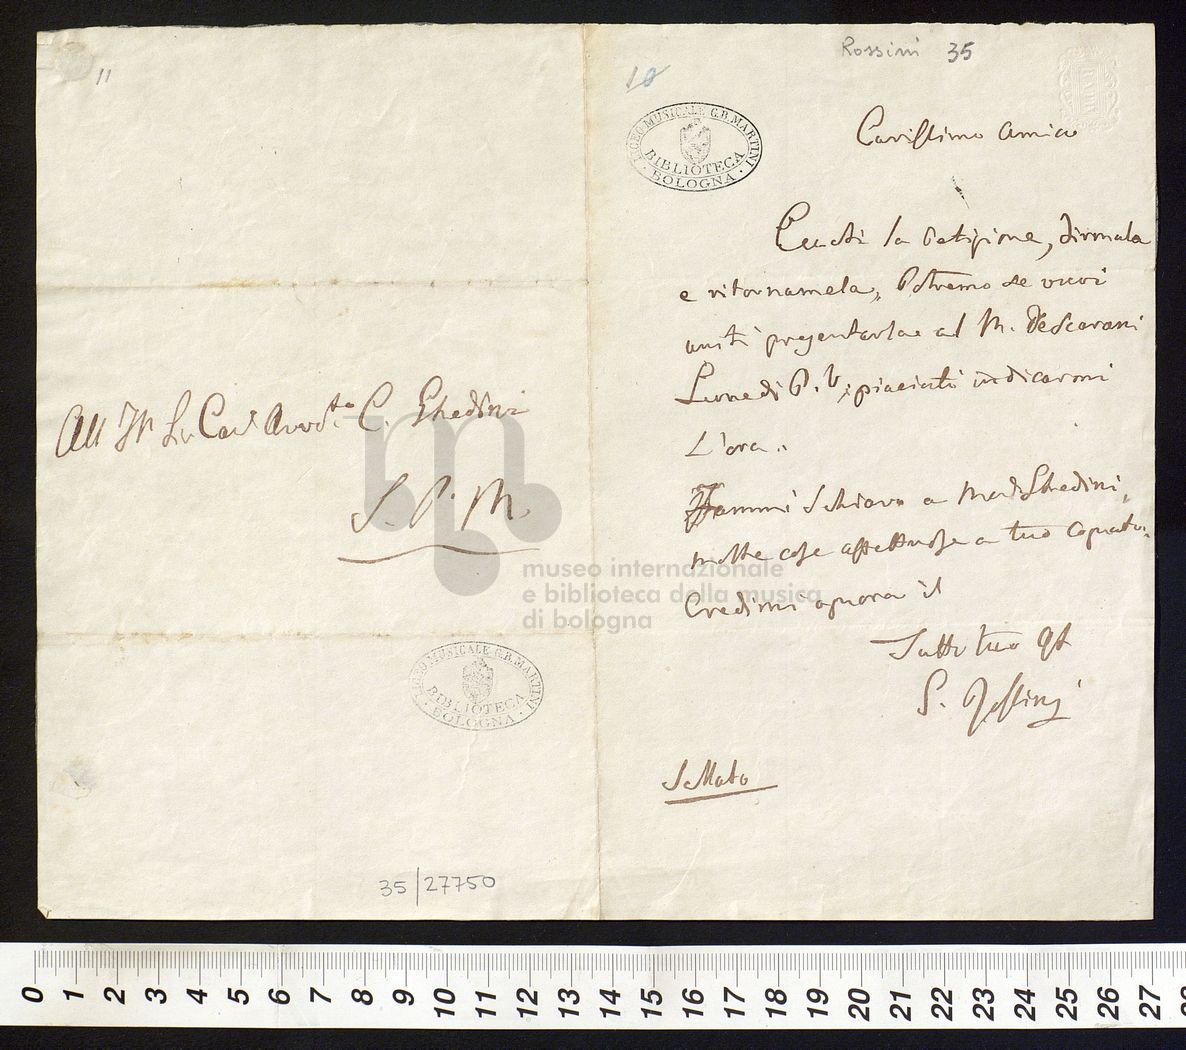 11
All Ill. Sir. Cav. Avvto. C. Ghedini
S. P. M.
LICEO MUSICALE G.B. MARTINI
BIBLIOTECA
BOLOGNA
35/27750
Rossini 35
10
LICEO MUSICALE G.B. MARTINI
BIBLIOTECA
BOLOGNA
Carissimo Amico
Eccoti la Petizione, firmala
e ritornamela, Potremo se vuoi
uniti presentarla al M. Pescarani
Lunedi P. V., piaciati indicarmi
L'ora.
Fammi Schiavo a Mad. Ghedini,
molte cose affettuose a tuo Cognato.
Credimi ognora il
Tutto tuo
G. Rossini
S. Mato
museo internazionale
e biblioteca della musica
di bologna
0 1 2 3 4 5 6 7 8 9 10 11 12 13 14 15 16 17 18 19 20 21 22 23 24 25 26 27 28